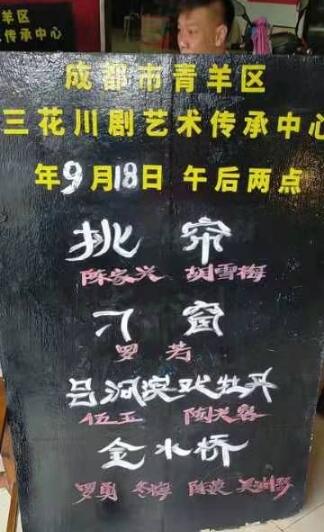 羊区
艺术传承中心
成都市青羊区
三花川剧艺术传承中心
年9月18日 午后两点
挑帘
陈家兴 胡雪梅
刁窗
罗芳
吕洞滨戏牡丹
伍玉
金水桥
罗勇 冬梅